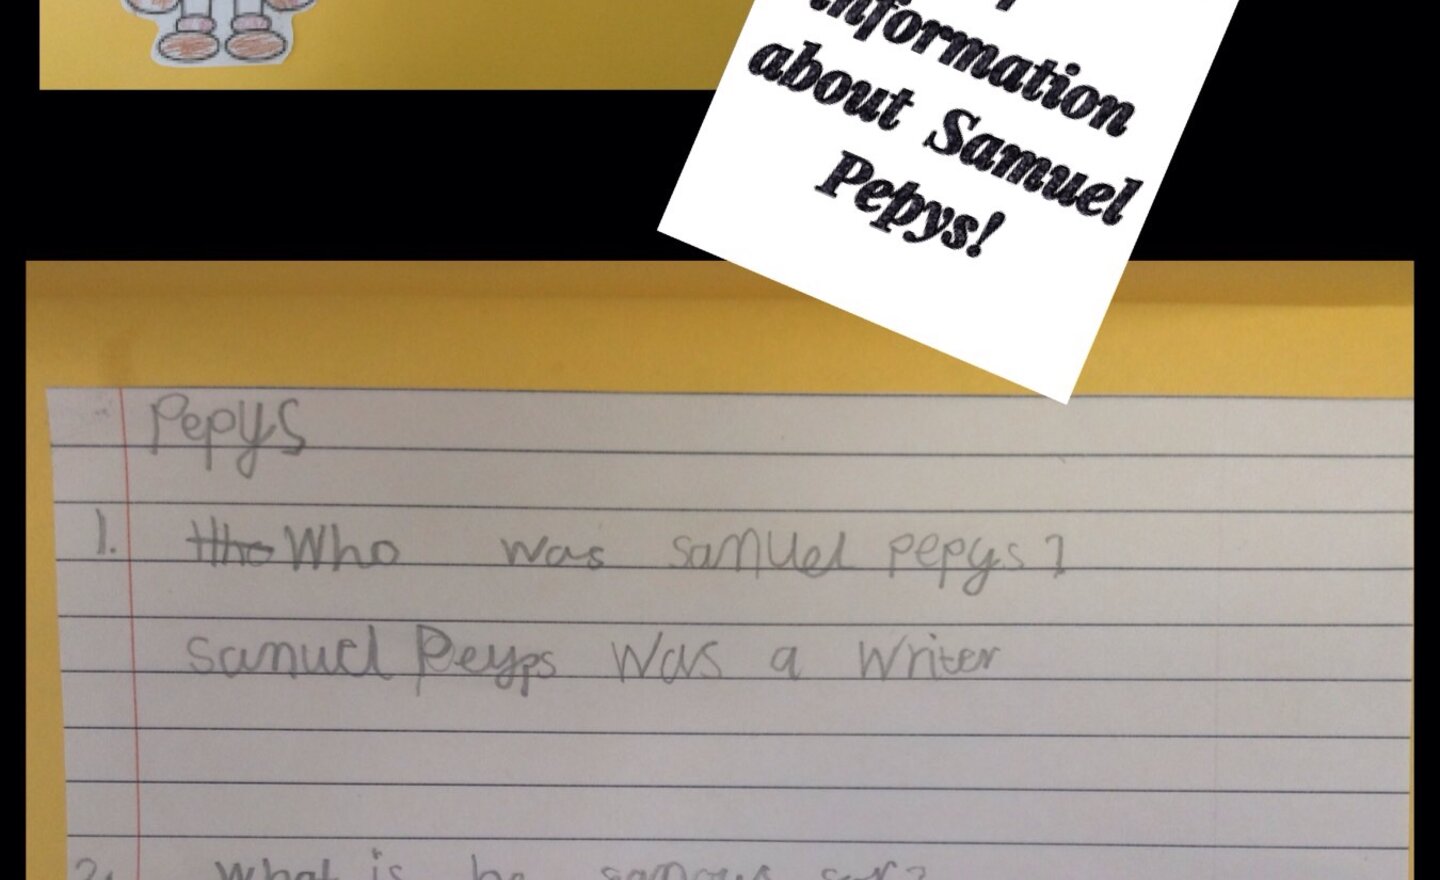 information
about Samuel
Pepys!
Pepys
1. Who was samuel pepys?
samuel Peyps was a writer
2. What is he